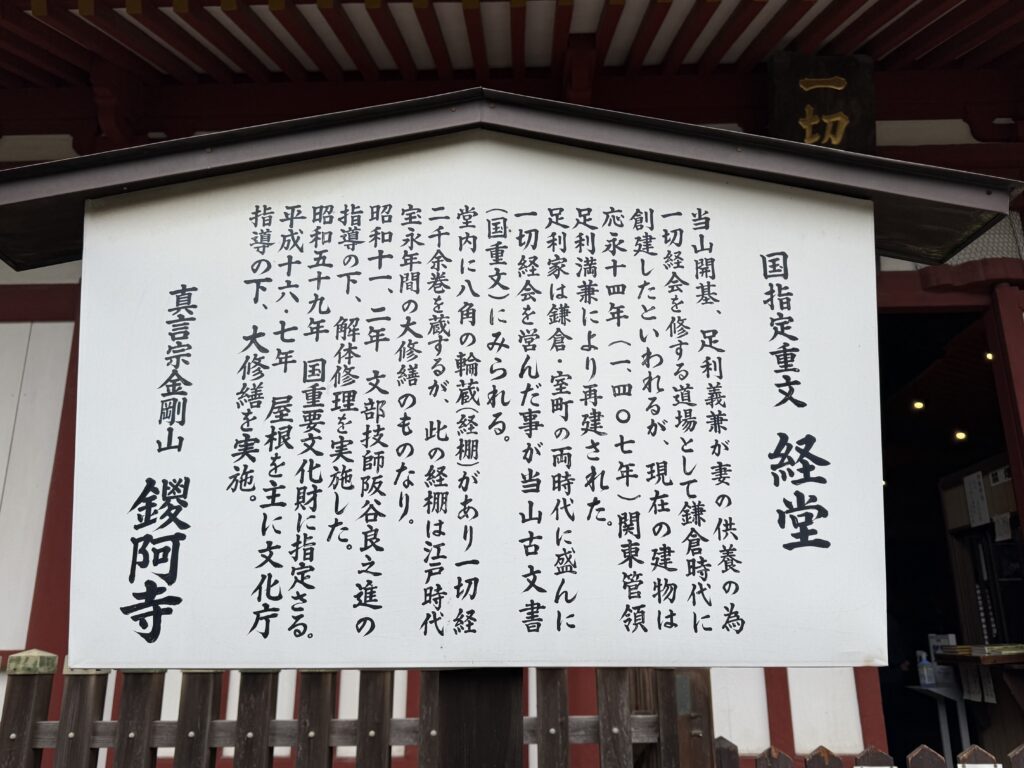 一切
国指定重文 経堂
当山開基、足利義兼が妻の供養の為
一切経会を修する道場として鎌倉時代に
創建したといわれるが、現在の建物は
応永十四年(一、四〇七年)関東管領
足利満兼により再建された。
足利家は鎌倉・室町の両時代に盛んに
一切経会を営んだ事が当山古文書
(国重文)にみられる。
堂内に八角の輪蔵(経棚)があり一切経
二千余巻を蔵するが、此の経棚は江戸時代
宝永年間の大修繕のものなり。
昭和十一、二年 文部技師阪谷良之進の
指導の下、解体修理を実施した。
昭和五十九年 国重要文化財に指定さる。
平成十六・七年 屋根を主に文化庁
指導の下、大修繕を実施。
真言宗金剛山 鑁阿寺